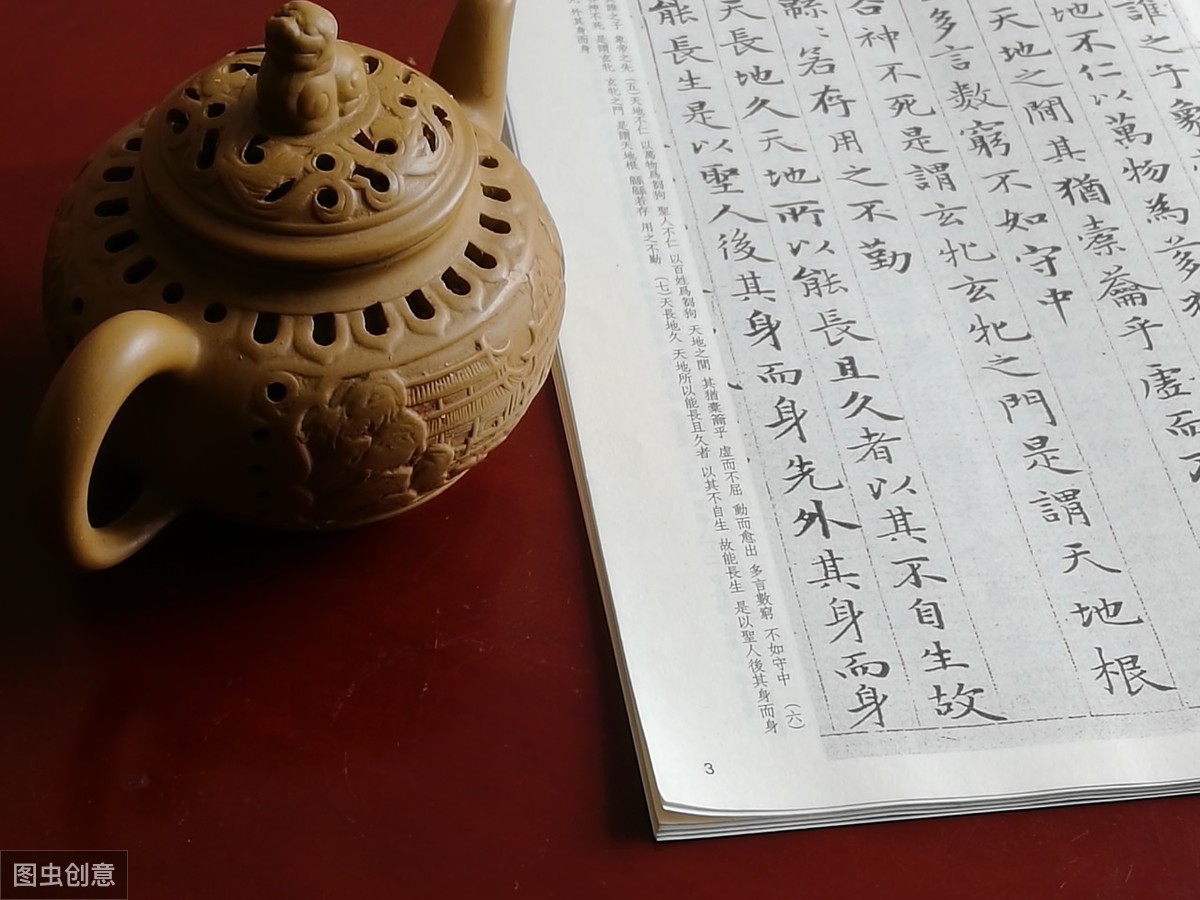 誰之子象
地不仁以萬物為芻狗
天地之間其猶橐籥乎虛而
多言數窮不如守中
谷神不死是謂玄牝玄牝之門是謂天地根
緜〻若存用之不勤
天長地久天地所以能長且久者以其不自生故
能長生是以聖人後其身而身先外其身而身
誰之子 象帝之先 (五)天地不仁 以萬物爲芻狗 聖人不仁 以百姓爲芻狗 天地之間 其猶橐籥乎 虛而不屈 動而愈出 多言數窮 不如守中 (六)
神不死 是謂玄牝 玄牝之門 是謂天地根 緜緜若存 用之不勤 (七)天長地久 天地所以能長且久者 以其不自生 故能長生 是以聖人後其身而身
先 外其身而身
3
图虫创意